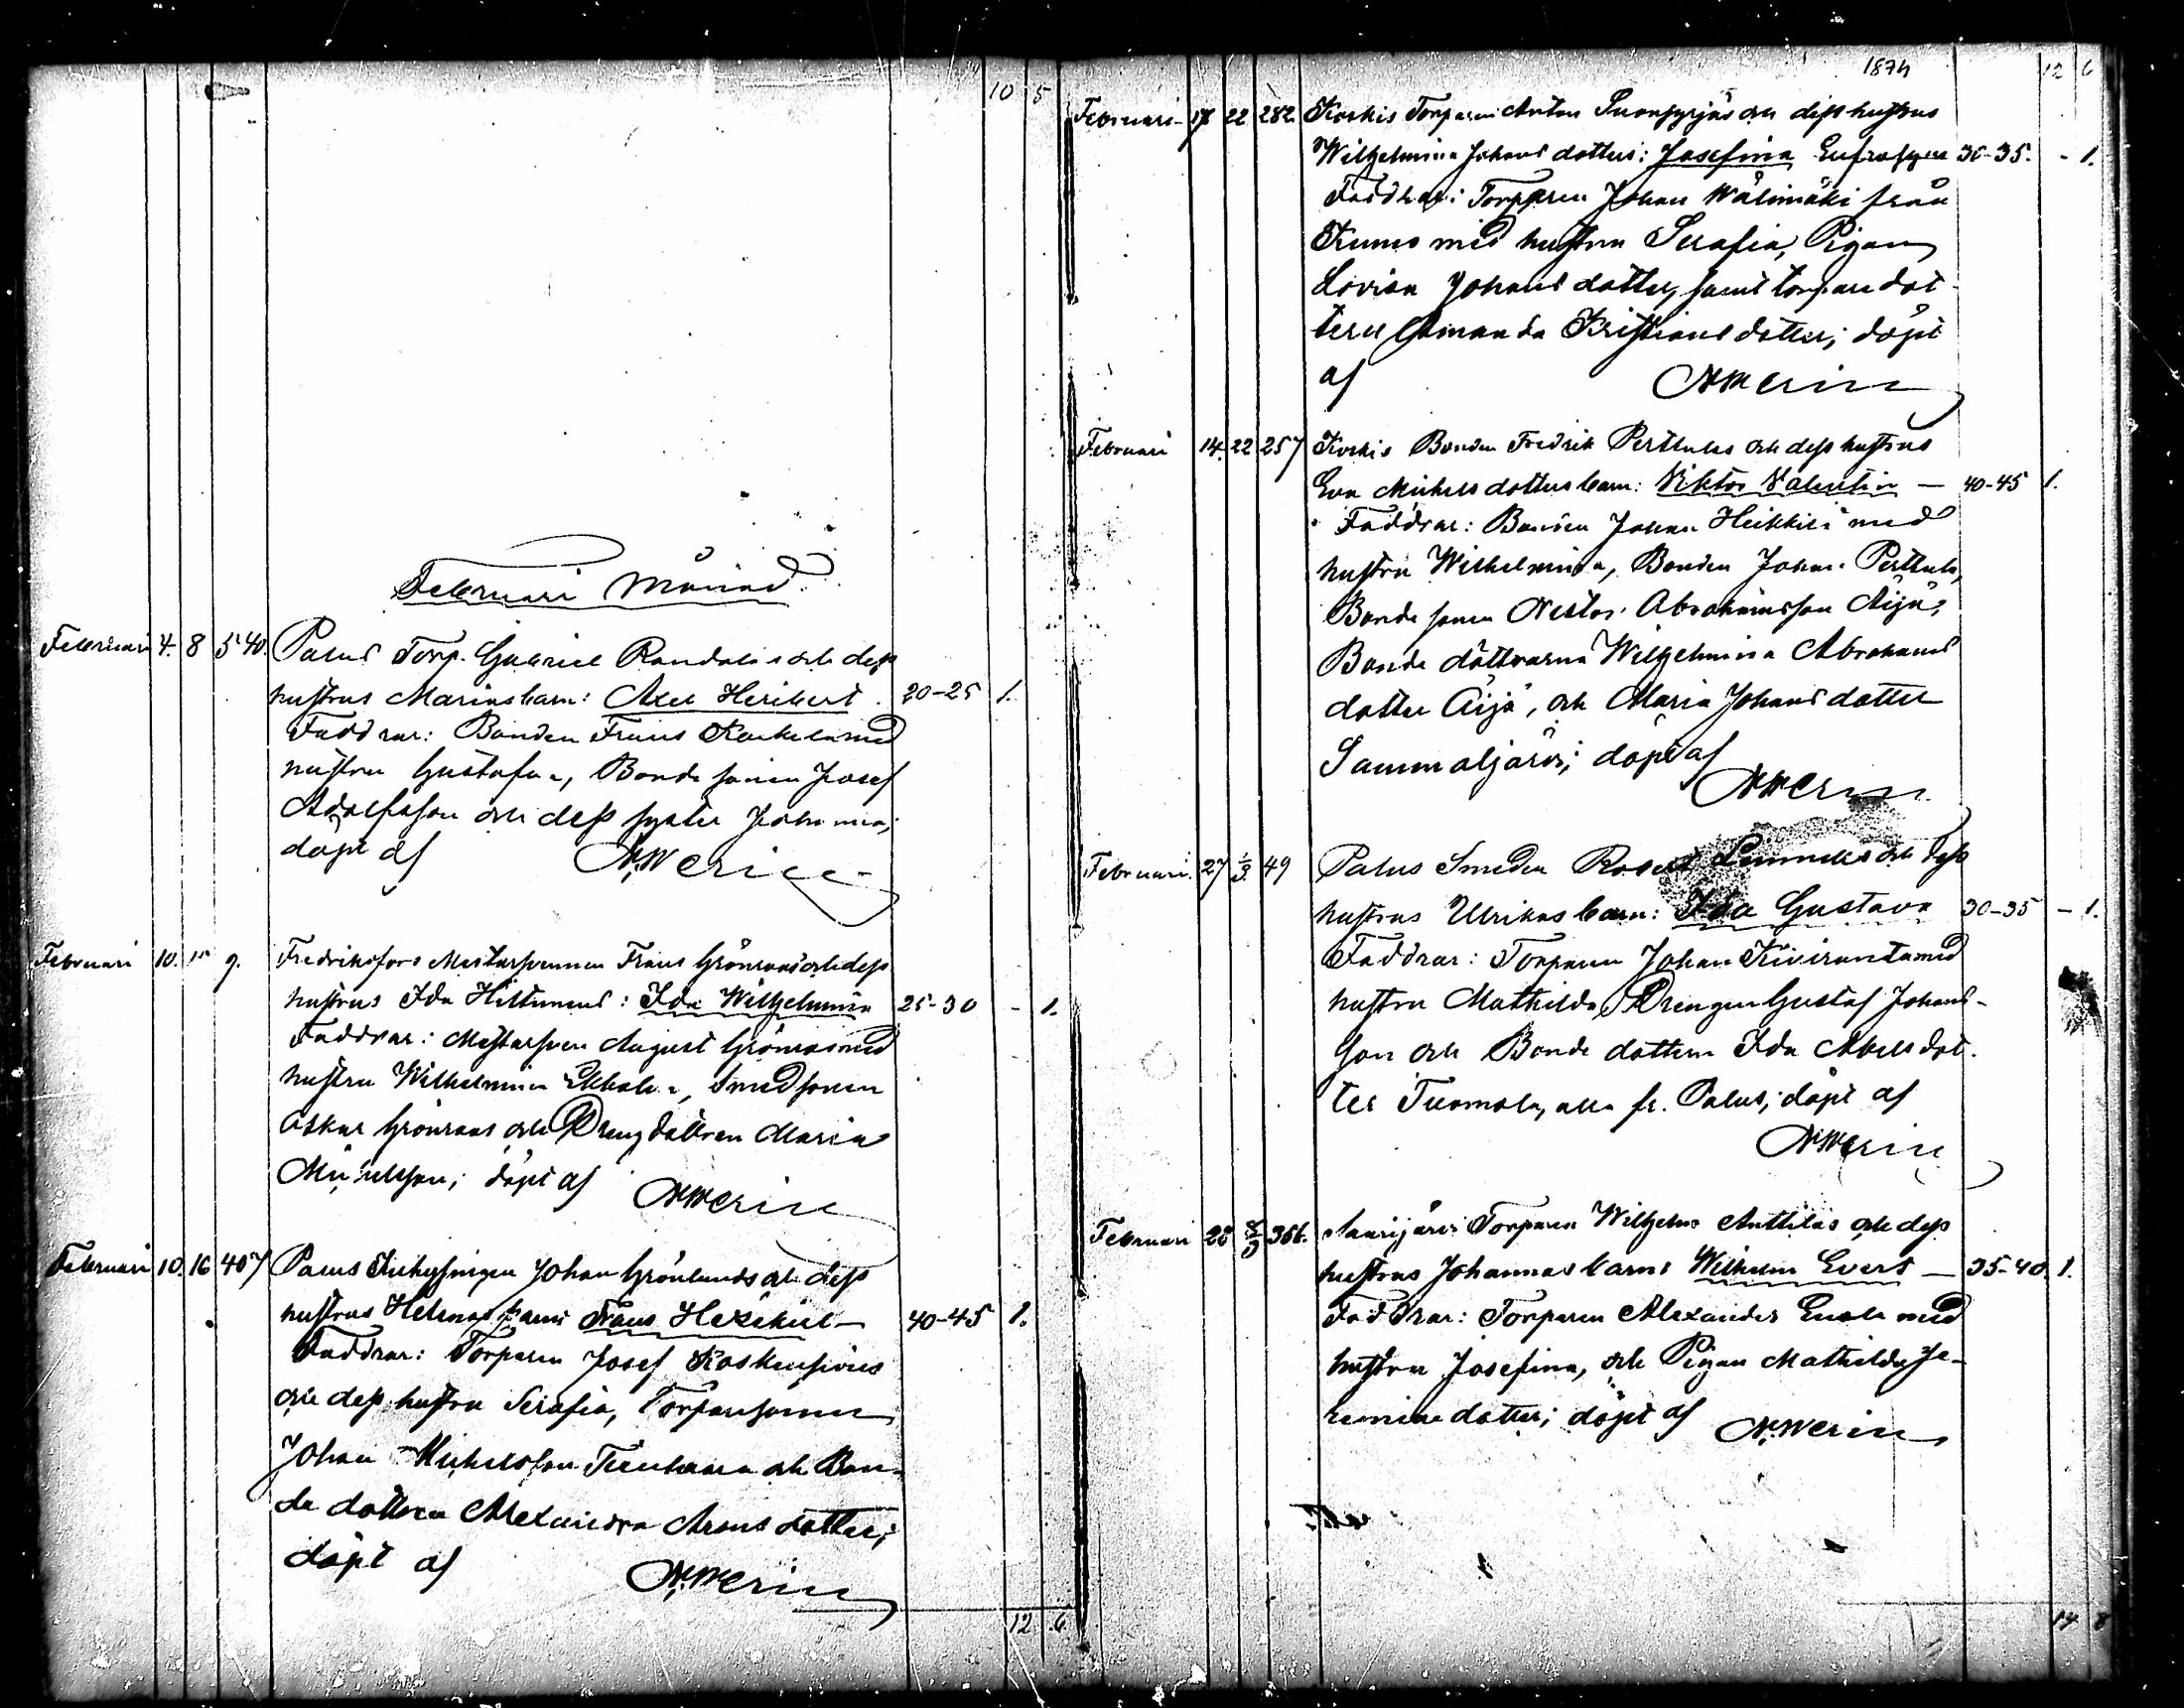 10 5
Februari Månad.
Februari 4. 8 540. Palus Torp. Gabriel Randalas och dess
hustrus Marias barn: Axel Heribert. 20-25 1.
Faddrar: Bonden Frans Kaukela med
hustru Gustafva, Bondesonen Josef
Adolfsson och dess syster Johanna;
döpt af NWerin
Februari 10. 15 9. Fredriksfors Mästarsvennen Frans Grönroos och dess
hustrus Ida Hiltunens: Ida Wilhelmina 25-30 - 1.
Faddrar: Mästarsven August Grönroos med
hustru Wilhelmina, Smedsonen
Oskar Grönroos och Drengdottren Maria
Mickelsson; döpt af NWerin
Februari 10. 16 407 Palus Johan Grönlunds och dess
hustrus Helenas barn: Frans Hezekiel - 40-45 1.
Faddrar: Torparen Josef
och dess hustru Serafia, Torparesonen
Johan Mickelsson och Bon-
de dottren Alexandra Arons dotter;
döpt af NWerin
12 6
1874 12 6
Februari 17 22 282 Koskis Torparen Anton Suonpyrjäs och dess hustrus
Wilhelmina Johans dotters: Josefina Eufrosyne 30-35. - 1.
Faddrar: Torparen Johan Wälimäki från
Kumo med hustru Serafia, Pigan
Lovisa Johans dotter, samt torpare dot-
tern Amanda Kristians dotter; döpt
af NWerin
Februari 14. 22 257 Koskis Bonden Fredrik Perttulas och dess hustrus
Eva Michels dotters barn: Viktor Valentin - 40-45 1.
Faddrar: Bonden Johan Heikkilä med
hustru Wilhelmina, Bonden Johan Perttula,
Bonde sonen Nestor Abrahamsson Äijä,
Bonde döttrarna Wilhelmina Abrahams
dotter Äijä, och Maria Johans dotter
Sammaljärvi; döpt af
NWerin
Februari. 27 1/3 49 Palus Smeden och dess
hustrus Ulrikas barn: Ida Gustava 30-35 - 1.
Faddrar: Torparen Johan Kiviranta med
hustru Mathilda, Drengen Gustaf Johans-
son och Bonde dottern Ida Abels dot-
ter Tuomola, alla fr. Palus; döpt af
NWerin
Februari 28 8/3 366. Saarijärvi Torparen Wilhelm Anttilas och dess
hustrus Johannas barn: Wilhelm Evert - 35-40. 1.
Faddrar: Torparen Alexander med
hustru Josefina, och Pigan Mathilda Je-
remine dotter; döpt af NWerin
14 8